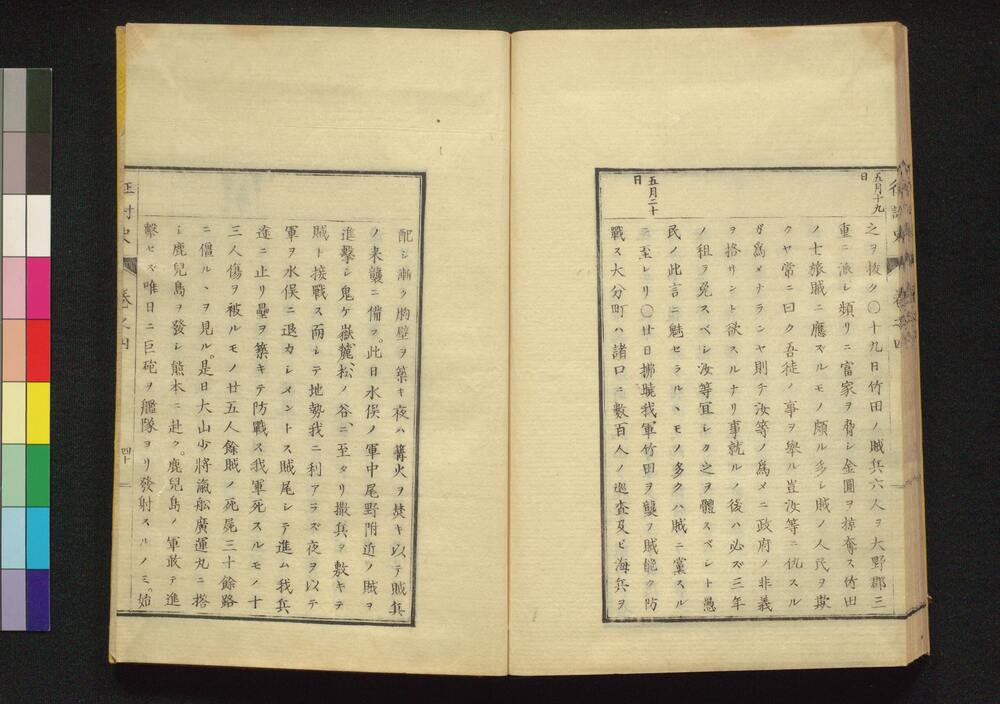 五月十九
日
之ヲ抜ク〇十九日竹田ノ賊兵六人ヲ大野郡三
重ニ派シ頻リニ富家ヲ脅シ金圓ヲ掠奪ス竹田
ノ士族賊ニ應ズルモノ頗ル多シ賊ノ人民ヲ欺
クヤ常ニ曰ク吾徒ノ事ヲ舉ル豈汝等ニ仇スル
ガ爲メナランヤ則チ汝等ノ爲メニ政府ノ非義
ヲ挌リント欲スルナリ事就ルノ後ハ必ズ三年
ノ租ヲ免スベシ汝等冝シク之ヲ體スベシト愚
民ノ此言ニ魅セラルヽモノ多クハ賊ニ黨スル
ニ至レリ〇廿日拂曉我軍竹田ヲ襲フ賊能ク防
五月二十
日
戰ス大分町ハ諸口ニ數百人ノ巡査及ビ海兵ヲ
配シ漸ク胸壁ヲ築キ夜ハ篝火ヲ焚キ以テ賊兵
ノ来襲ニ備フ。此日水俣ノ軍中尾野附近ノ賊ヲ
進擊シ鬼ケ嶽麓、松ノ谷ニ、至タリ撒兵ヲ敷キテ
賊ト接戰ス而シテ地勢我ニ利アラズ夜ヲ以テ
軍ヲ水俣ニ退カシメントス賊尾シテ進ム我兵
途ニ止リ壘ヲ築キテ防戰ス我軍死スルモノ十
三人傷ヲ被ルモノ廿五人餘賊ノ死屍三十餘路
ニ僵ルヽヲ見ル。是日大山少將滊船廣運丸ニ搭
シ鹿兒島ヲ發シ熊本ニ赴ク。鹿兒島ノ軍敢テ進
擊セズ唯日ニ巨砲ヲ艦隊ヨリ發射スルノミ。始
征討史
巻之四
四十